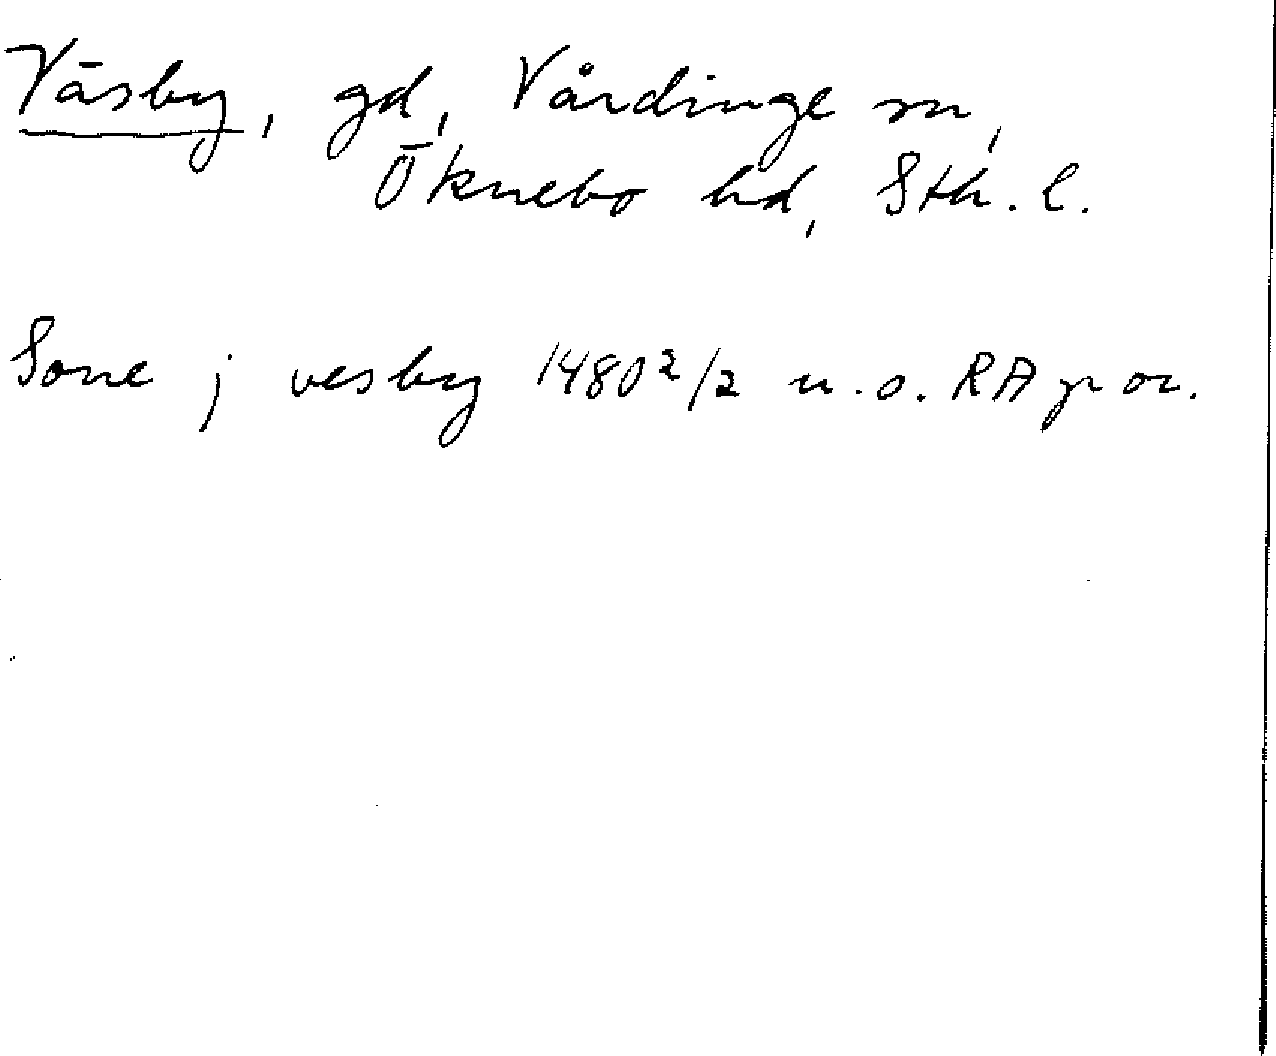 Väsby, gd, Vårdinge sn,
Öknebo hd, Sth. l.
Sone j vesby 1480 2/2 u.o. RA p or.